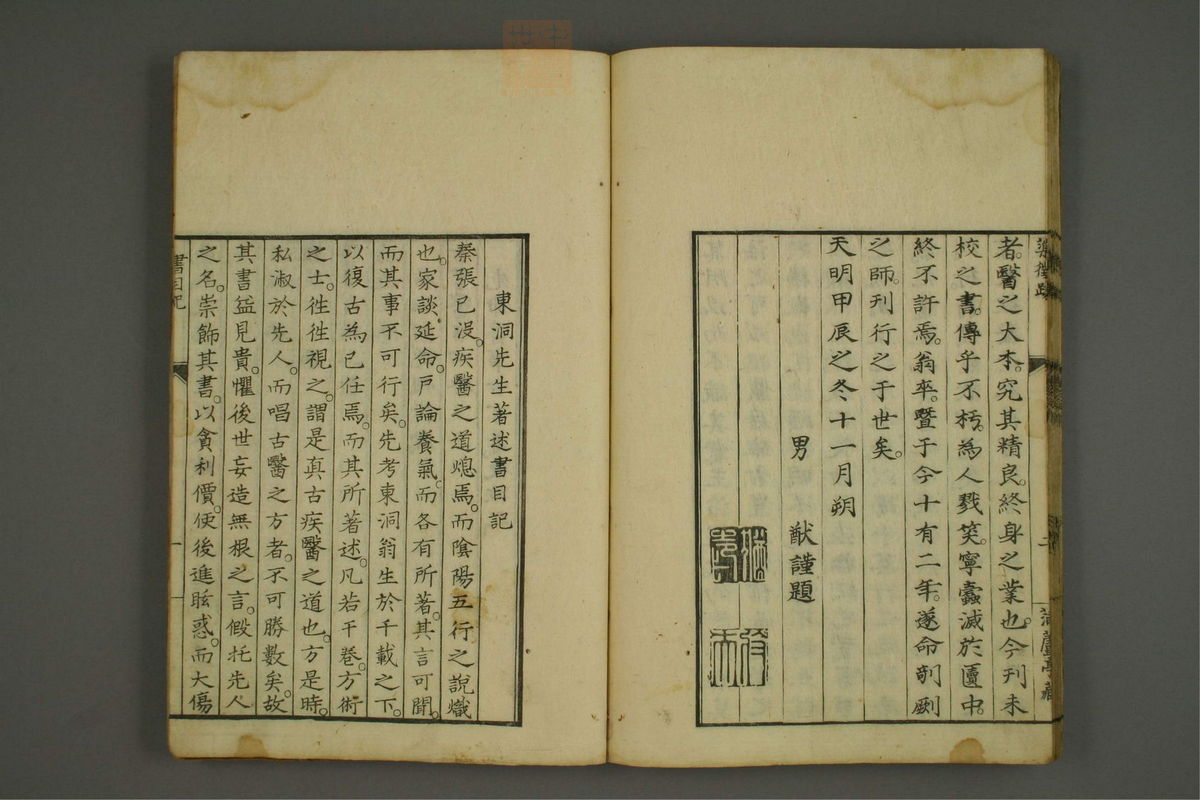 者。醫之大本。究其精良。終身之業也。今刊未
校之書。傳乎不朽。為人戮笑。寧蠹滅於匵中。
終不許焉。翁卒。暨于今十有二年。遂命剞劂
之師。刊行之于世矣。
天明甲辰之冬十一月朔
男 猷謹題
東洞先生著述書目記
秦張已沒。疾醫之道熄焉。而陰陽五行之說熾
也。家談延命。戶論養氣。而各有所著。其言可聞。
而其事不可行矣。先考東洞翁生於千載之下。
以復古為己任焉。而其所著述。凡若干卷。方術
之士。徃徃視之。謂是真古疾醫之道也。方是時。
私淑於先人。而唱古醫之方者。不可勝數矣。故
其書益見貴。懼後世妄造無根之言。假托先人
之名。崇飾其書。以貪利價。使後進眩惑。而大傷
書目記
一